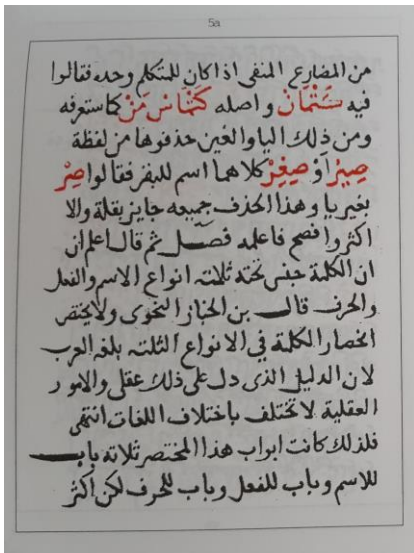 5a
من المضارع المنفى اذا كان للمتكلم وحده فقالوا
فيه سَتْمَان واصله كَتْمَاسْ مَنْ كما ستعرفه
ومن ذلك اليا والغين حذفوها من لفظة
صِيِرْ اَوْ صِغِرْ كلاهما اسم للبقر فقالوا صِرْ
بغير يا وهذا الحذف جميعه جايز بقلة والا
اكثر وافصح فاعلمه فصل ثم قال اعلم ان
ان الكلمة جنس تحته ثلثه انواع الاسم والفعل
والحرف قال بن الخباز النحوى ولا يختص
انحصار الكلمة فى الانواع الثلثه بلغه العرب
لان الدليل الذى دل على ذلك عقلى والامور
العقلية لا تختلف باختلاف اللغات انتهى
فلذلك كانت ابواب هذا المختصر ثلاثه باب
للاسم وباب للفعل وباب للحرف لكن اكثر